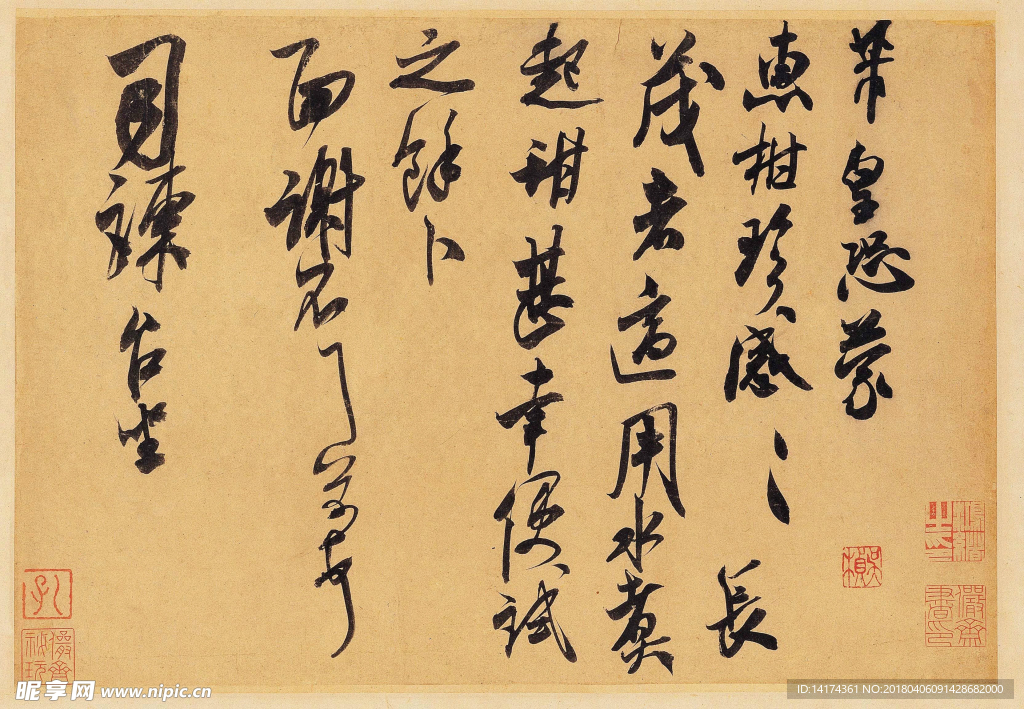 芾皇恐蒙
惠柑珍感〻 長
茂者適用水煑
起甜甚幸便試
之餘卜
面謝不
司諫台坐
吳楨
儼齋祕玩
昵享网 www.nipic.cn
ID:14174361 NO:20180406091428682000